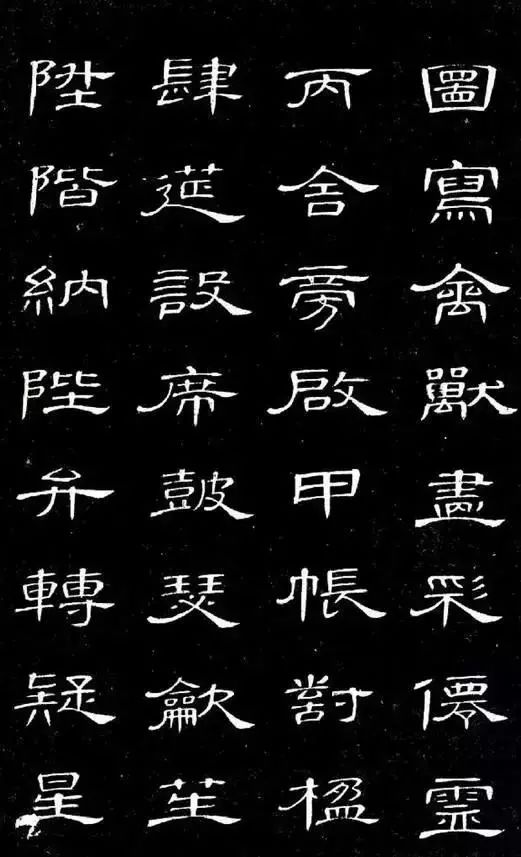 圖寫禽獸畫彩僊靈
丙舍旁啟甲帳對楹
肆莚設席鼓瑟龡笙
陞階納陛弁轉疑星